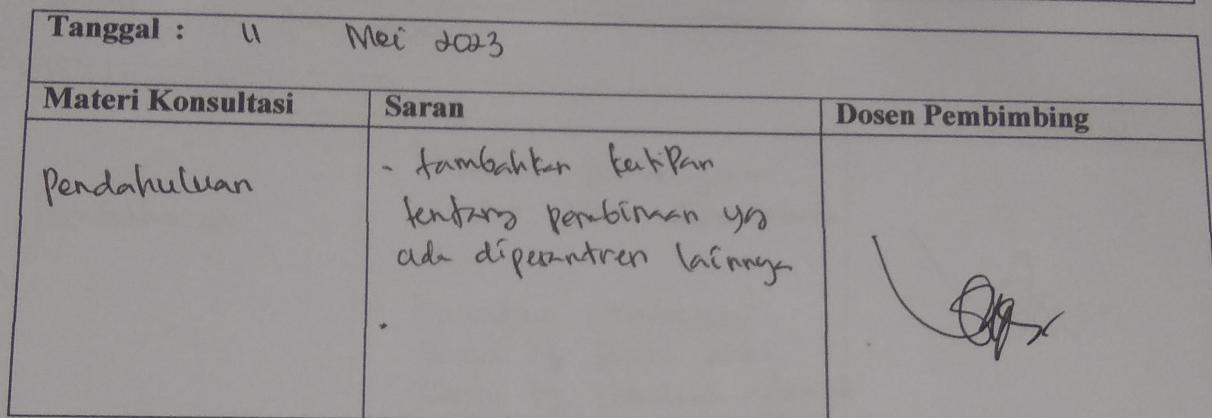 Tanggal : 11 Mei 2023
Materi Konsultasi Saran Dosen Pembimbing
Pendahuluan
- tambahkan kutipan
tentang pembinaan yg
ada dipesantren lainnya